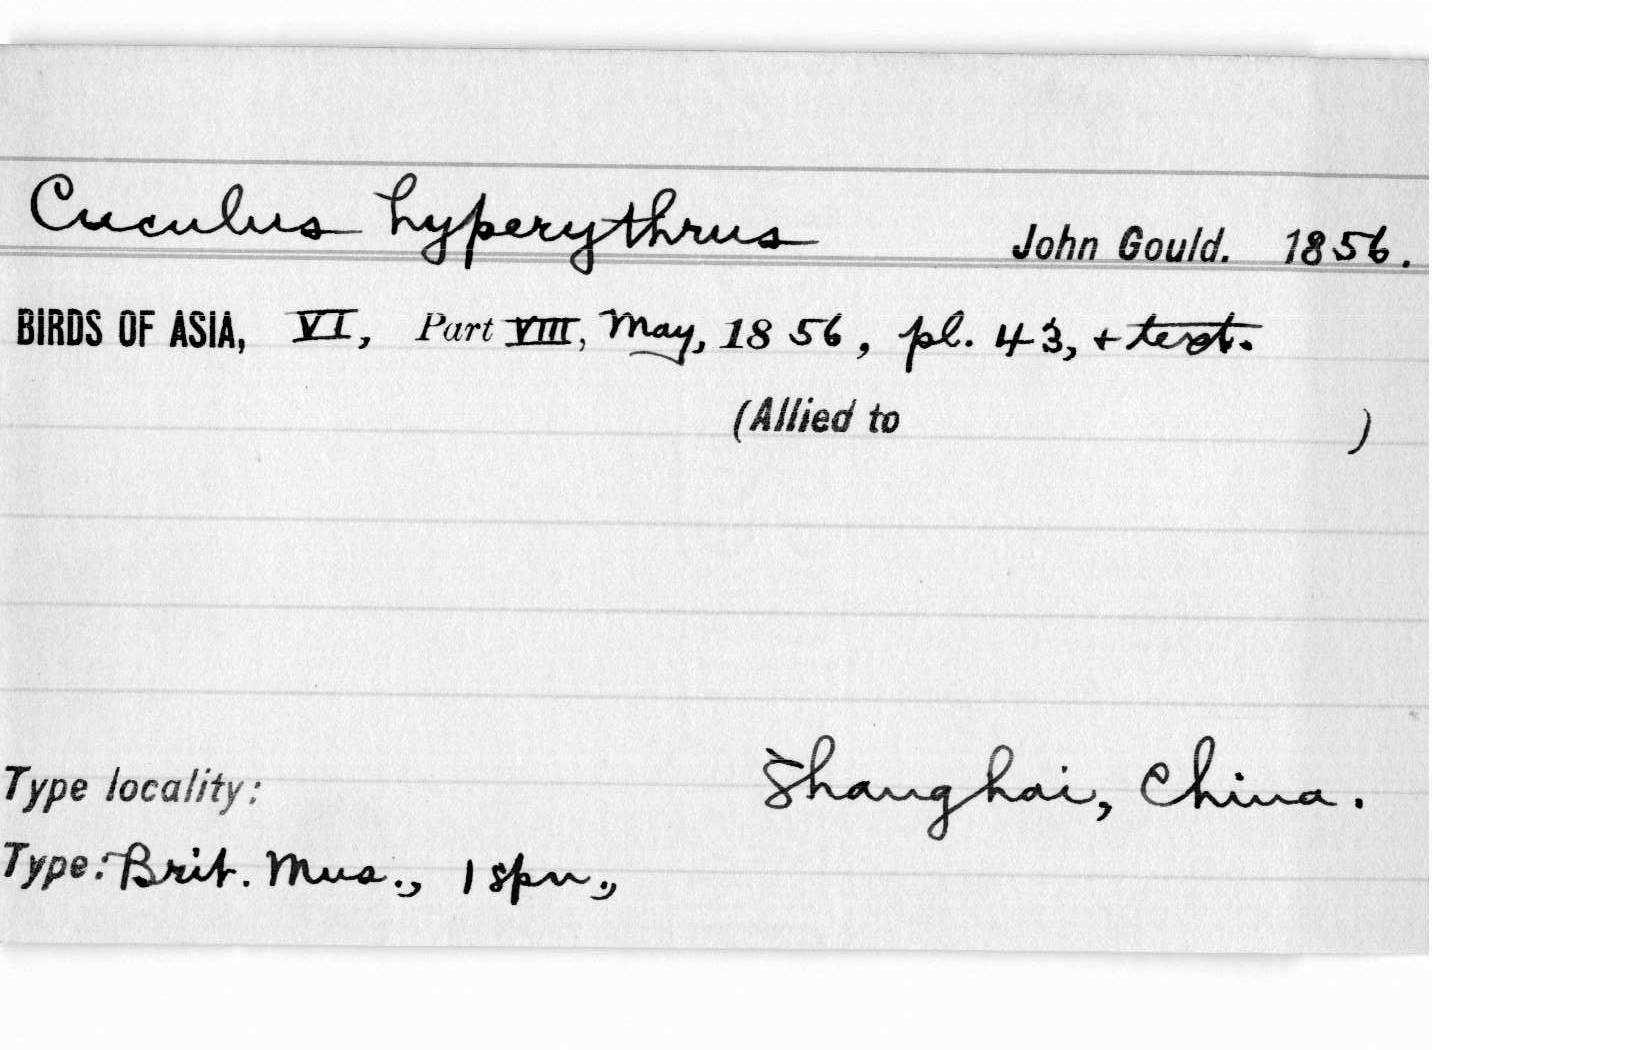 Cuculus hyperythrus John Gould. 1856.
BIRDS OF ASIA, VI, Part VIII, May, 1856, pl. 43, + text.
(Allied to )
Type locality: Shanghai, China.
Type: Brit. Mus., 1 spn.,